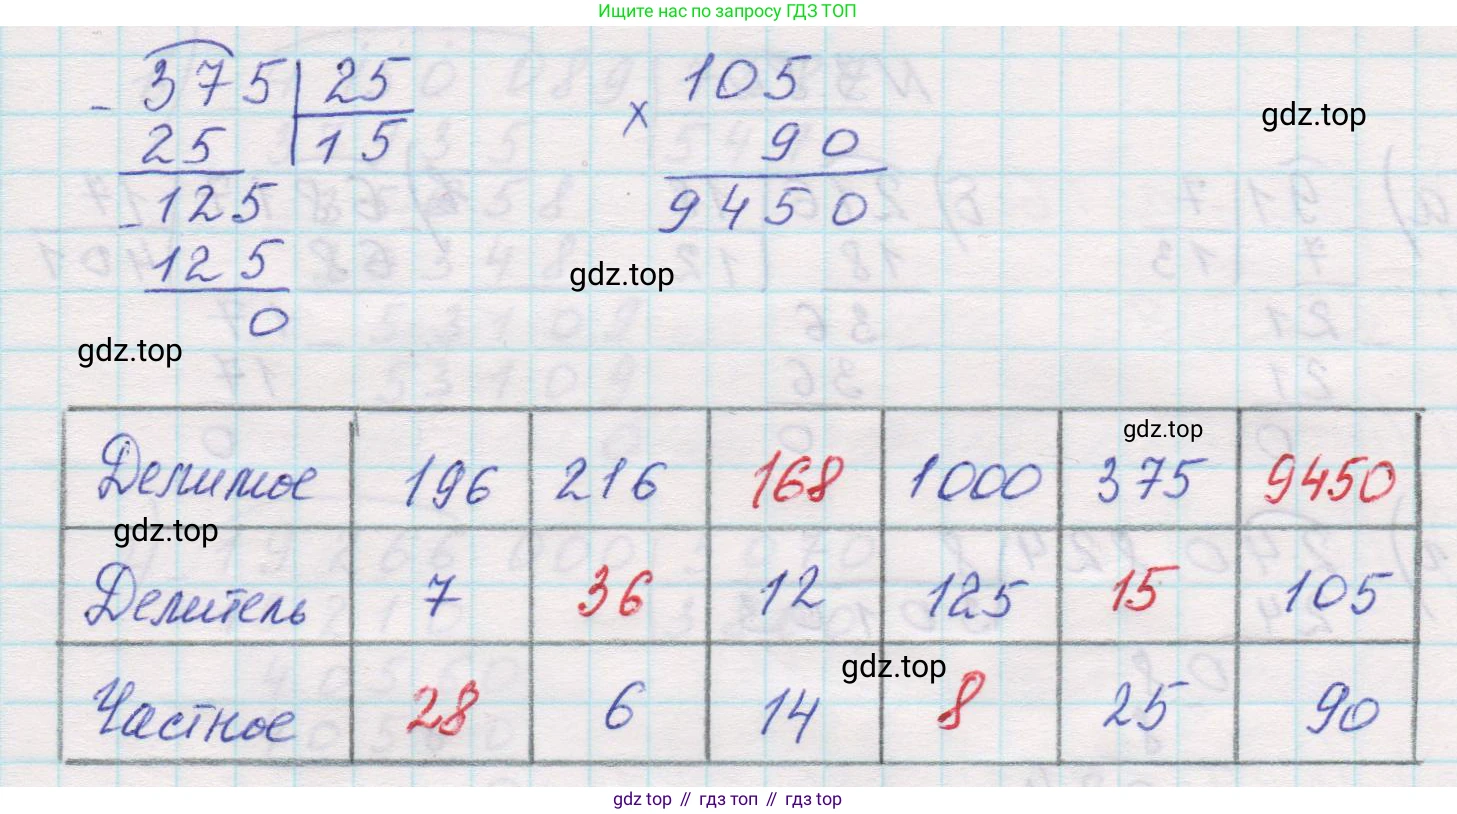 Ищите нас по запросу ГДЗ ТОП
- 375 | 25
25 | 15
- 125
125
0
× 105
90
9450
gdz.top
gdz.top
gdz.top
gdz.top
Делимое 196 216 168 1000 375 9450
gdz.top
Делитель 7 36 12 125 15 105
gdz.top
Частное 28 6 14 8 25 90
gdz top // гдз топ // гдз top